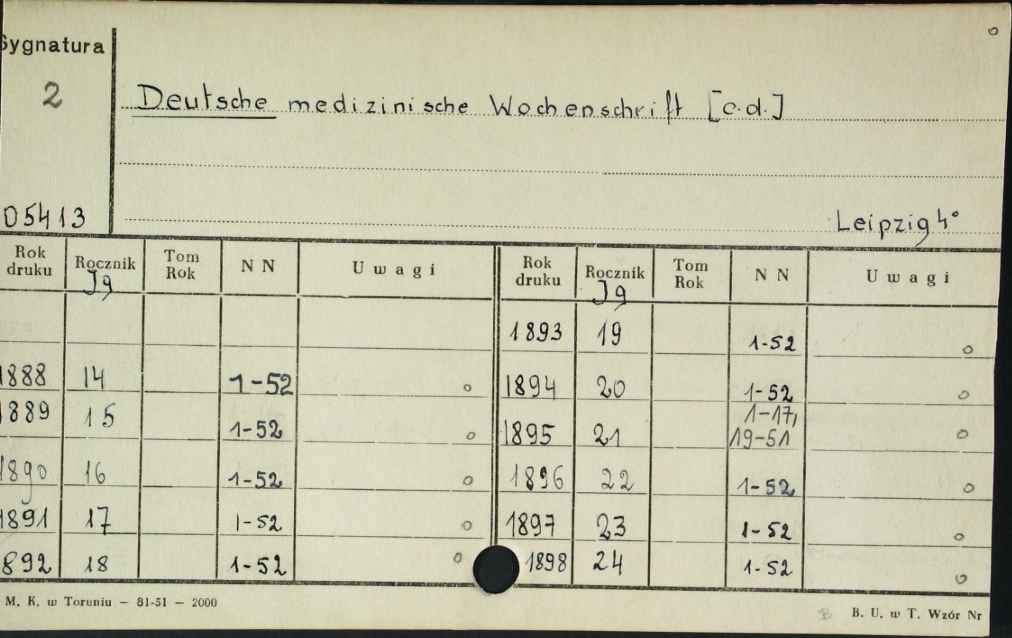 Sygnatura
2
Deutsche medizinische Wochenschrift [c.d.]
05413
Leipzig 4°
Rok druku Rocznik Jg Tom Rok N N Uwagi Rok druku Rocznik Jg Tom Rok N N Uwagi
1893 19 1-52
1888 14 1-52 1894 20 1-52
1889 15 1-52 1895 21 1-17, 19-51
1890 16 1-52 1896 22 1-52
1891 17 1-52 1897 23 1-52
892 18 1-52 1898 24 1-52
M. K. w Toruniu — 81-51 — 2000
B. U. w T. Wzór Nr